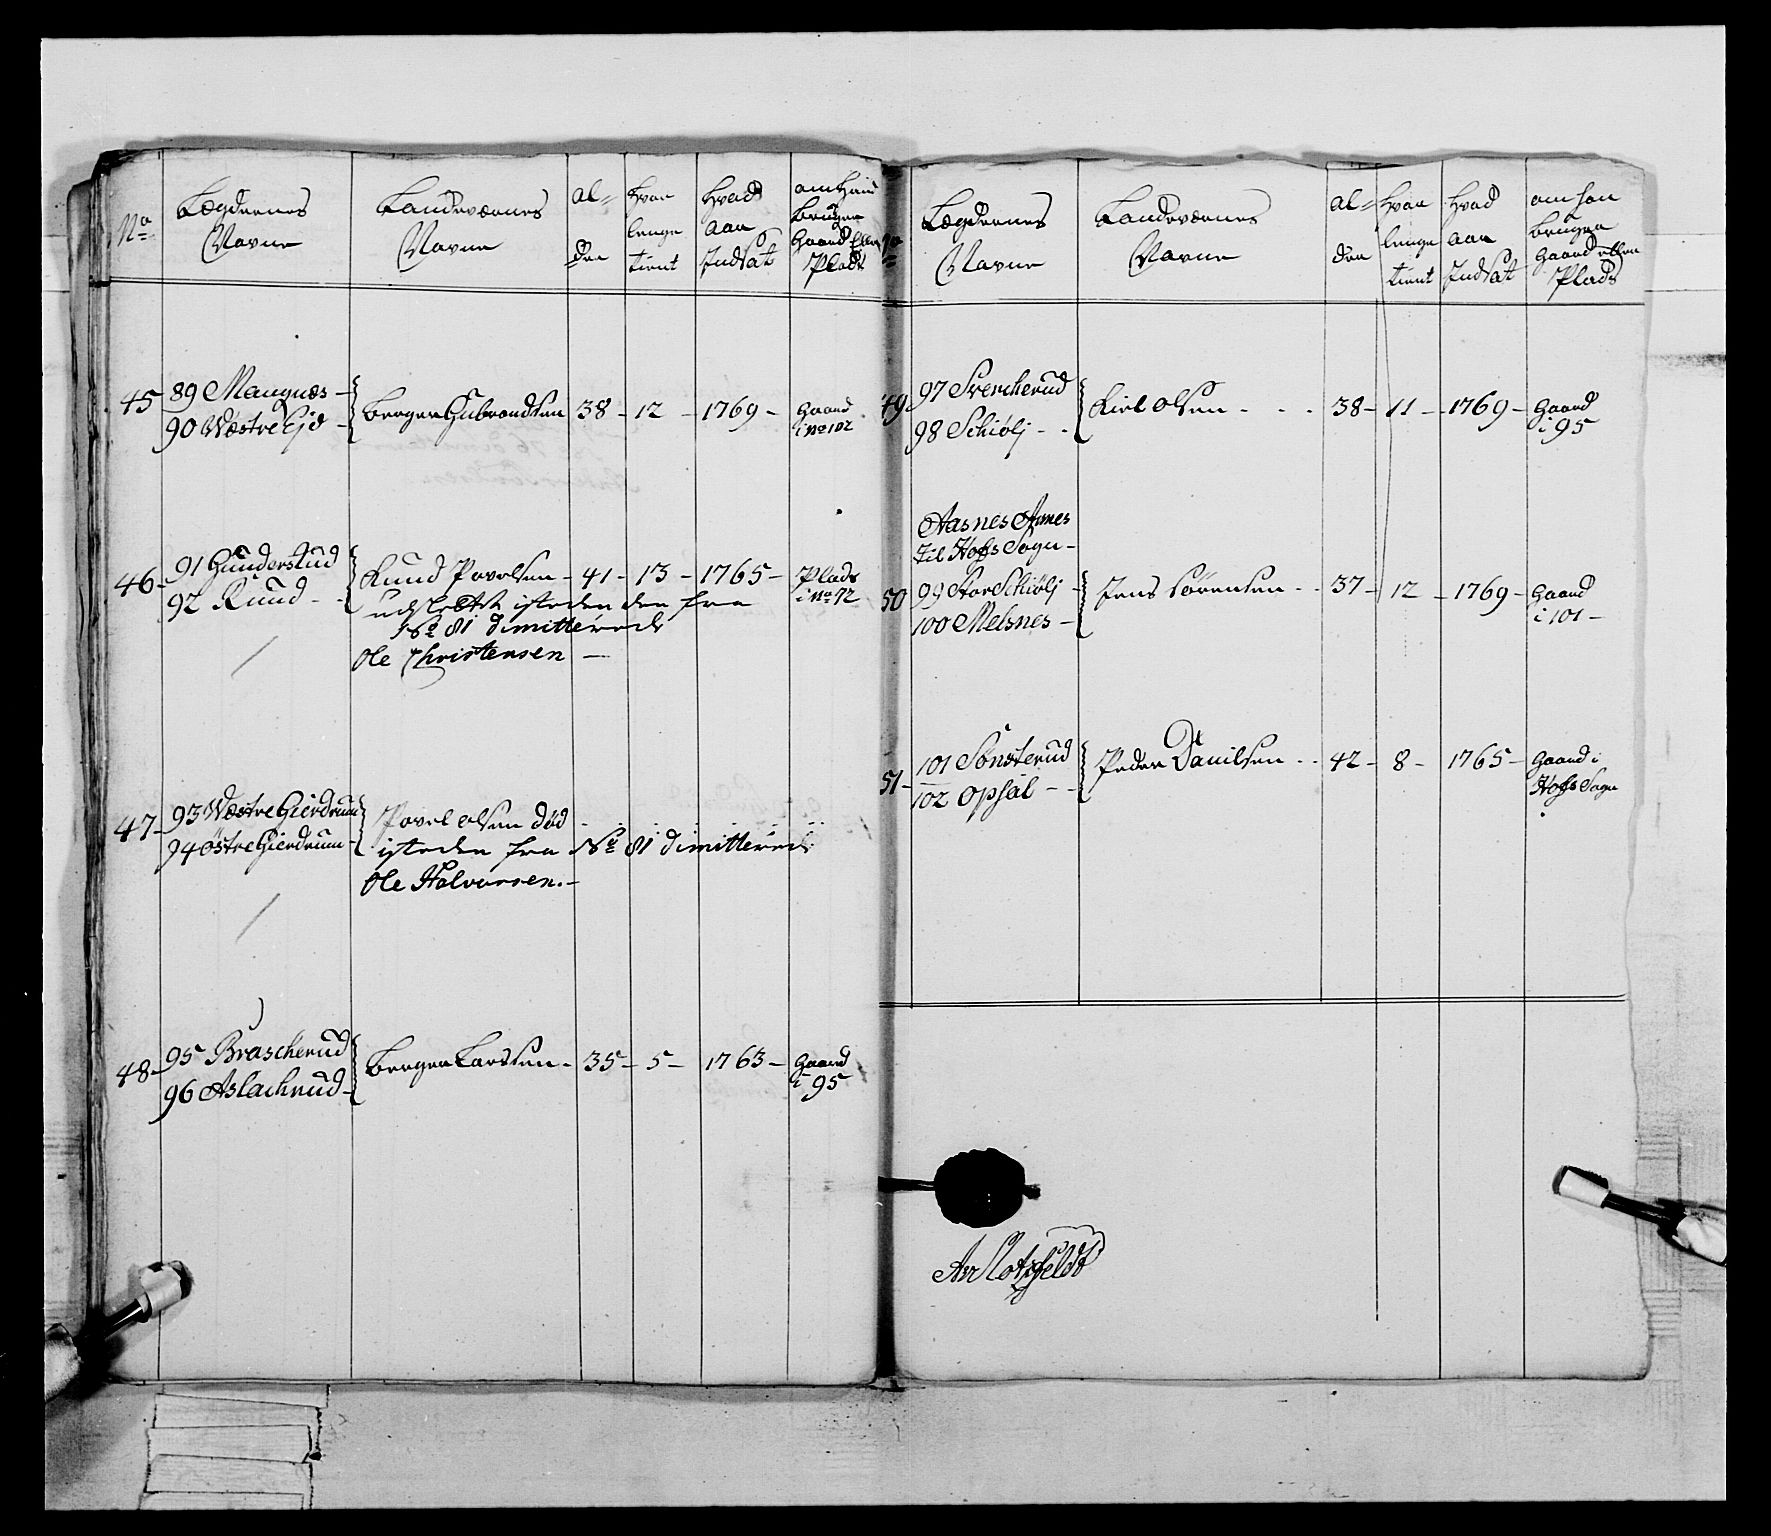 No
Lægdernes
Navne
Landeværnes
Navne
Al-
der
Hvor
lenge
tient
Hvad
Aar
Indsat
om Hand
bruger
Gaard Eller
Plads
45
89 Mangnæs -
90 Wæstre Eid -
Berger Gubrandsen
38 -
12 -
1769 -
Gaard
i No 102
46 -
91 Gunderstud
92 Ruud - -
Knud Povelsen -
41 -
13 -
1765 -
Plads
i No 72
udslettet isteden den fra
No 81 dimitterede
Ole Christensen -
47 -
93 Wæstre Gierdrum
94 Østre Gierdrum -
Povel Olsen død
isteden fra No 81 dimitterede
Ole Halvorsen. -
48 -
95 Brascherud
96 Aslachrud -
Berger Larssen -
35 -
5 -
1763 -
Gaard
i 95
No
Lægdernes
Navne
Landeværnes
Navne
Al-
der
Hvor
lenge
tient
Hvad
Aar
Indsat
om han
bruger
Gaard eller
Plads
49
97 Svercherud
98 Schiølj - -
Kiel Olsen - - -
38 -
11 -
1769 -
Gaard
i 95
Aasnes Annex
til Hofs Sogn -
50
99 Stor Schiølj -
100 Melsnes -
Jens Sørensen - -
37 -
12 -
1769 -
Gaard
i 101 -
51 -
101 Sønsterud
102 Opsal - -
Peder Danilsen - -
42 -
8 -
1765 -
Gaard i
Hofs Sogn